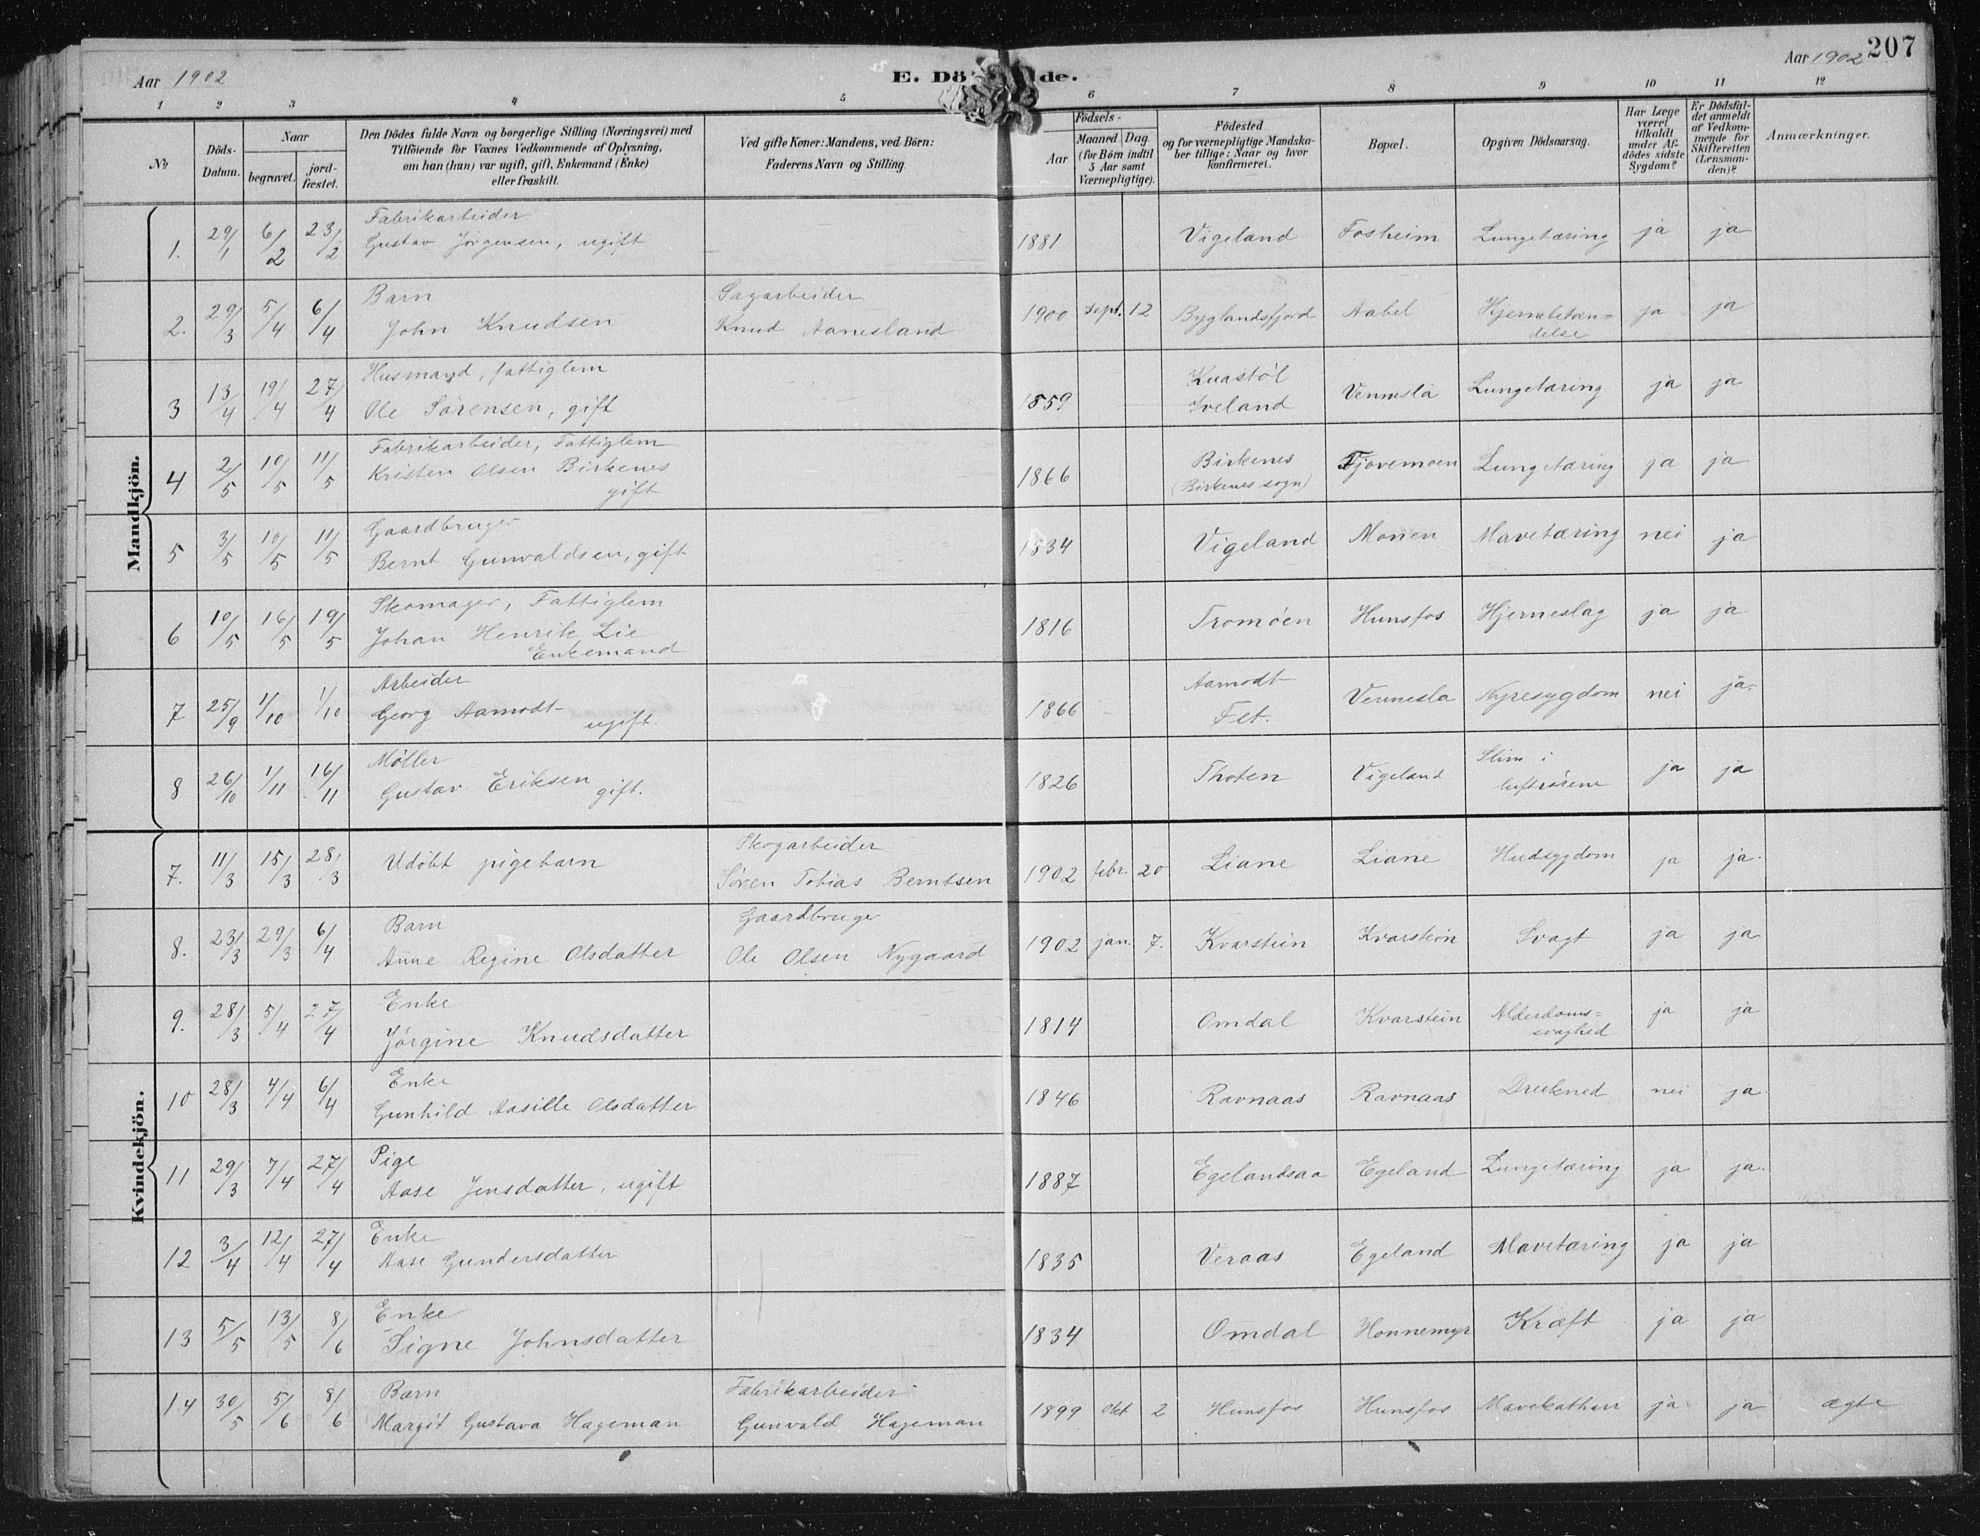 Aar 1902
E. Dö de.
Aar 1902 207
1 2 3 4 5 6 7 8 9 10 11 12
No
Döds-Datum.
Naar
begravet.
jord-fæstet.
Den Dödes fulde Navn og borgerlige Stilling (Næringsvei) med
Tilföiende for Voxnes Vedkommende af Oplysning,
om han (hun) var ugift, gift, Enkemand (Enke)
eller fraskilt.
Ved gifte Koner: Mandens, ved Börn:
Faderens Navn og Stilling.
Födsels-
Aar
Maaned Dag
(for Börn indtil
5 Aar samt
Værnepligtige).
Födested
og for værnepligtige Mandska-
ber tillige: Naar og hvor
konfirmeret.
Bopæl.
Opgiven Dödsaarsag.
Har Læge
været
tilkaldt
under Af-
dödes sidste
Sygdom?
Er Dödsfal-
det anmeldt
af Vedkom-
mende for
Skifteretten
(Lensman-
den)?
Anmærkninger.
Mandkjön.
1. 29/1 6/2 23/2 Fabrikarbeider
Gustav Jørgensen, ugift 1881 Vigeland Fosheim Lungetæring ja ja
2. 29/3 5/4 6/4 Barn Sagarbeider
John Knudsen Knud Aanesland 1900 sept. 12 Byglandsfjord Aabel Hjernebetæn-
delse ja ja
3 13/4 19/4 27/4 Husmand, fattiglem
Ole Sørensen, gift 1859 Kuastøl
Iveland Vennsla Lungetæring ja ja
4 2/5 10/5 11/5 Fabrikarbeider, Fattiglem
Kristen Olsen Birkenes
gift 1866 Birkenes
(Birkenes sogn) Fjovemoen Lungetæring ja ja
5 3/5 10/5 11/5 Gaardbruger
Bernt Gunvaldsen, gift 1834 Vigeland Monen Mavetæring nei ja
6 10/5 16/5 19/5 Skomager, Fattiglem
Johan Henrik Lie
Enkemand 1816 Tromøen Hunsfos Hjerneslag ja ja
7 25/9 1/10 1/10 Arbeider
Georg Aamodt
ugift. 1866 Aamodt
Fet. Vennesla Nyresygdom nei ja.
8 26/10 1/11 16/11 Møller
Gustav Eriksen gift. 1826 Thoten Vigeland Slim i
luftrørene ja ja
Kvindekjön.
7. 11/3 15/3 28/3 Udøbt pigebarn Skogarbeider
Søren Tobias Berntsen 1902 febr. 20 Liane Liane Hudsygdom ja ja.
8. 23/3 29/3 6/4 Barn Gaardbruger
Anne Regine Olsdatter Ole Olsen Nygaard 1902 jan. 7. Kvarstein Kvarstein Svagt ja ja
9. 28/3 5/4 27/4 Enke
Jørgine Knudsdatter 1814 Omdal Kvarstein Alderdoms-
svaghed ja ja
10 28/3 4/4 6/4 Enke
Gunhild Aasille Olsdatter 1846 Ravnaas Ravnaas Drukned nei ja
11 29/3 7/4 27/4 Pige
Aase Jensdatter, ugift 1887 Egelandsaa Egeland Lungetæring ja ja.
12 3/4 12/4 27/4 Enke
Aase Gundersdatter 1835 Veraas Egeland Mavetæring ja ja
13 5/5 13/5 8/6 Enke
Signe Johnsdatter 1834 Omdal Honnemyr Kræft ja ja
14 30/5 5/6 8/6 Barn Fabrikarbeider
Margit Gustava Hageman Gunvald Hageman 1899 okt 2 Hunsfos Hunsfos Mavekatharr ja ja ægte